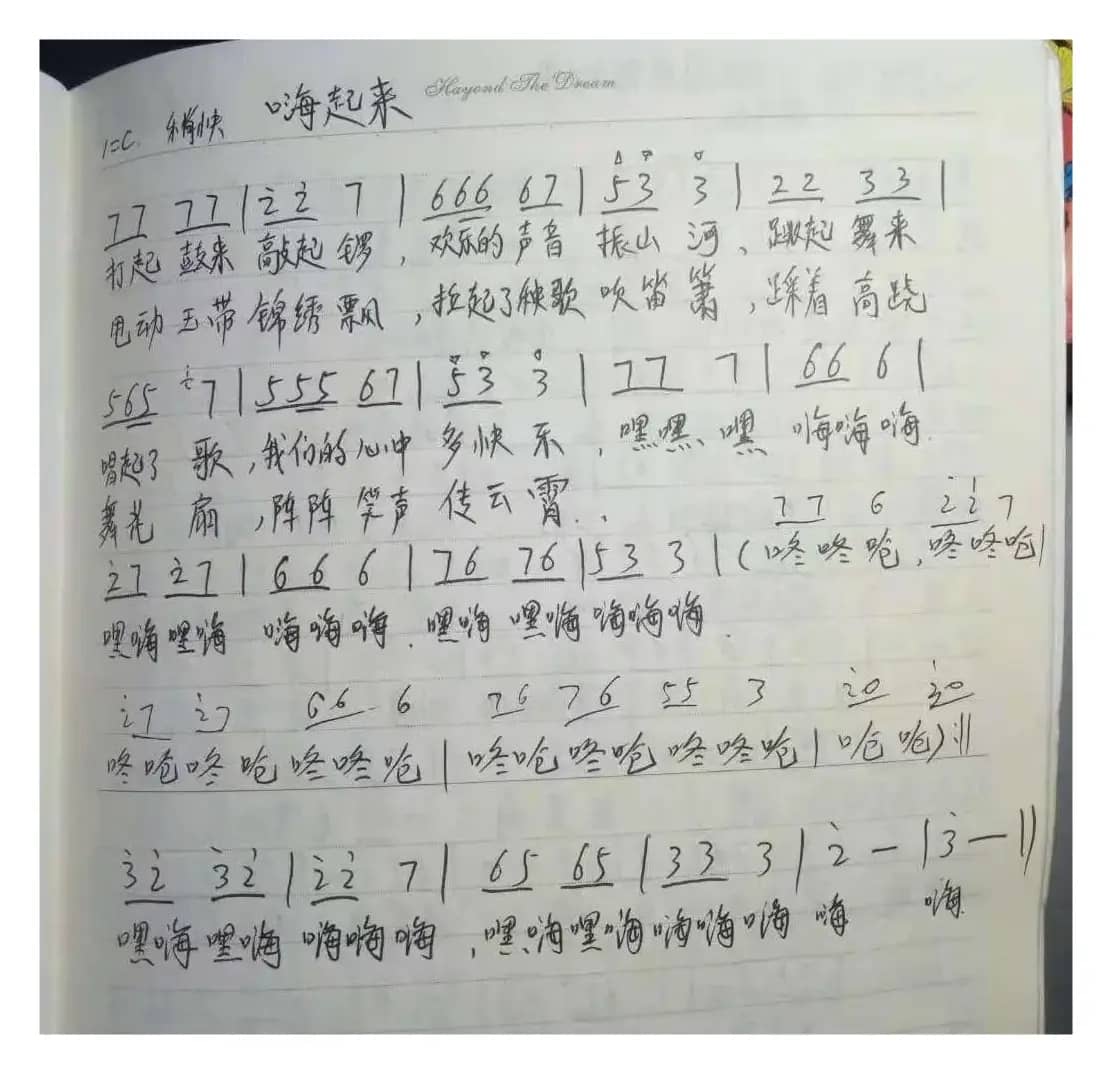 Hayond The Dream
1=C. 稍快 嗨起来
77 77 | i̇i̇ 7 | 666 67 | 53 3 | 22 33 |
打起 鼓来 敲起 锣，欢乐的声音 振山 河、跳起 舞来
甩动 玉带 锦绣 飘，扭起了秧歌 吹笛 箫，踩着 高跷
565 7 | 555 67 | 53 3 | 77 7 | 66 6 |
唱起了 歌，我们的心中 多快 乐，嘿嘿、嘿 嗨嗨 嗨.
舞花 扇，阵阵 笑声 传云 霄..
77 6 2̇2̇ 7
2̇7 2̇7 | 66 6 | 76 76 | 53 3 | (咚咚呛,咚咚呛|
嘿嗨嘿嗨 嗨嗨嗨.嘿嗨 嘿嗨嗨嗨嗨.
2̇7 2̇7 66 6 76 76 55 3 2̇0 3̇0
咚呛咚呛咚咚呛 | 咚呛咚呛咚咚呛 | 呛呛):||
3̇2̇ 3̇2̇ | 2̇2̇ 7 | 65 65 | 33 3 | 2̇ — | 3̇ — ||
嘿嗨嘿嗨 嗨嗨嗨,嘿嗨嘿嗨嗨嗨嗨 嗨 嗨.